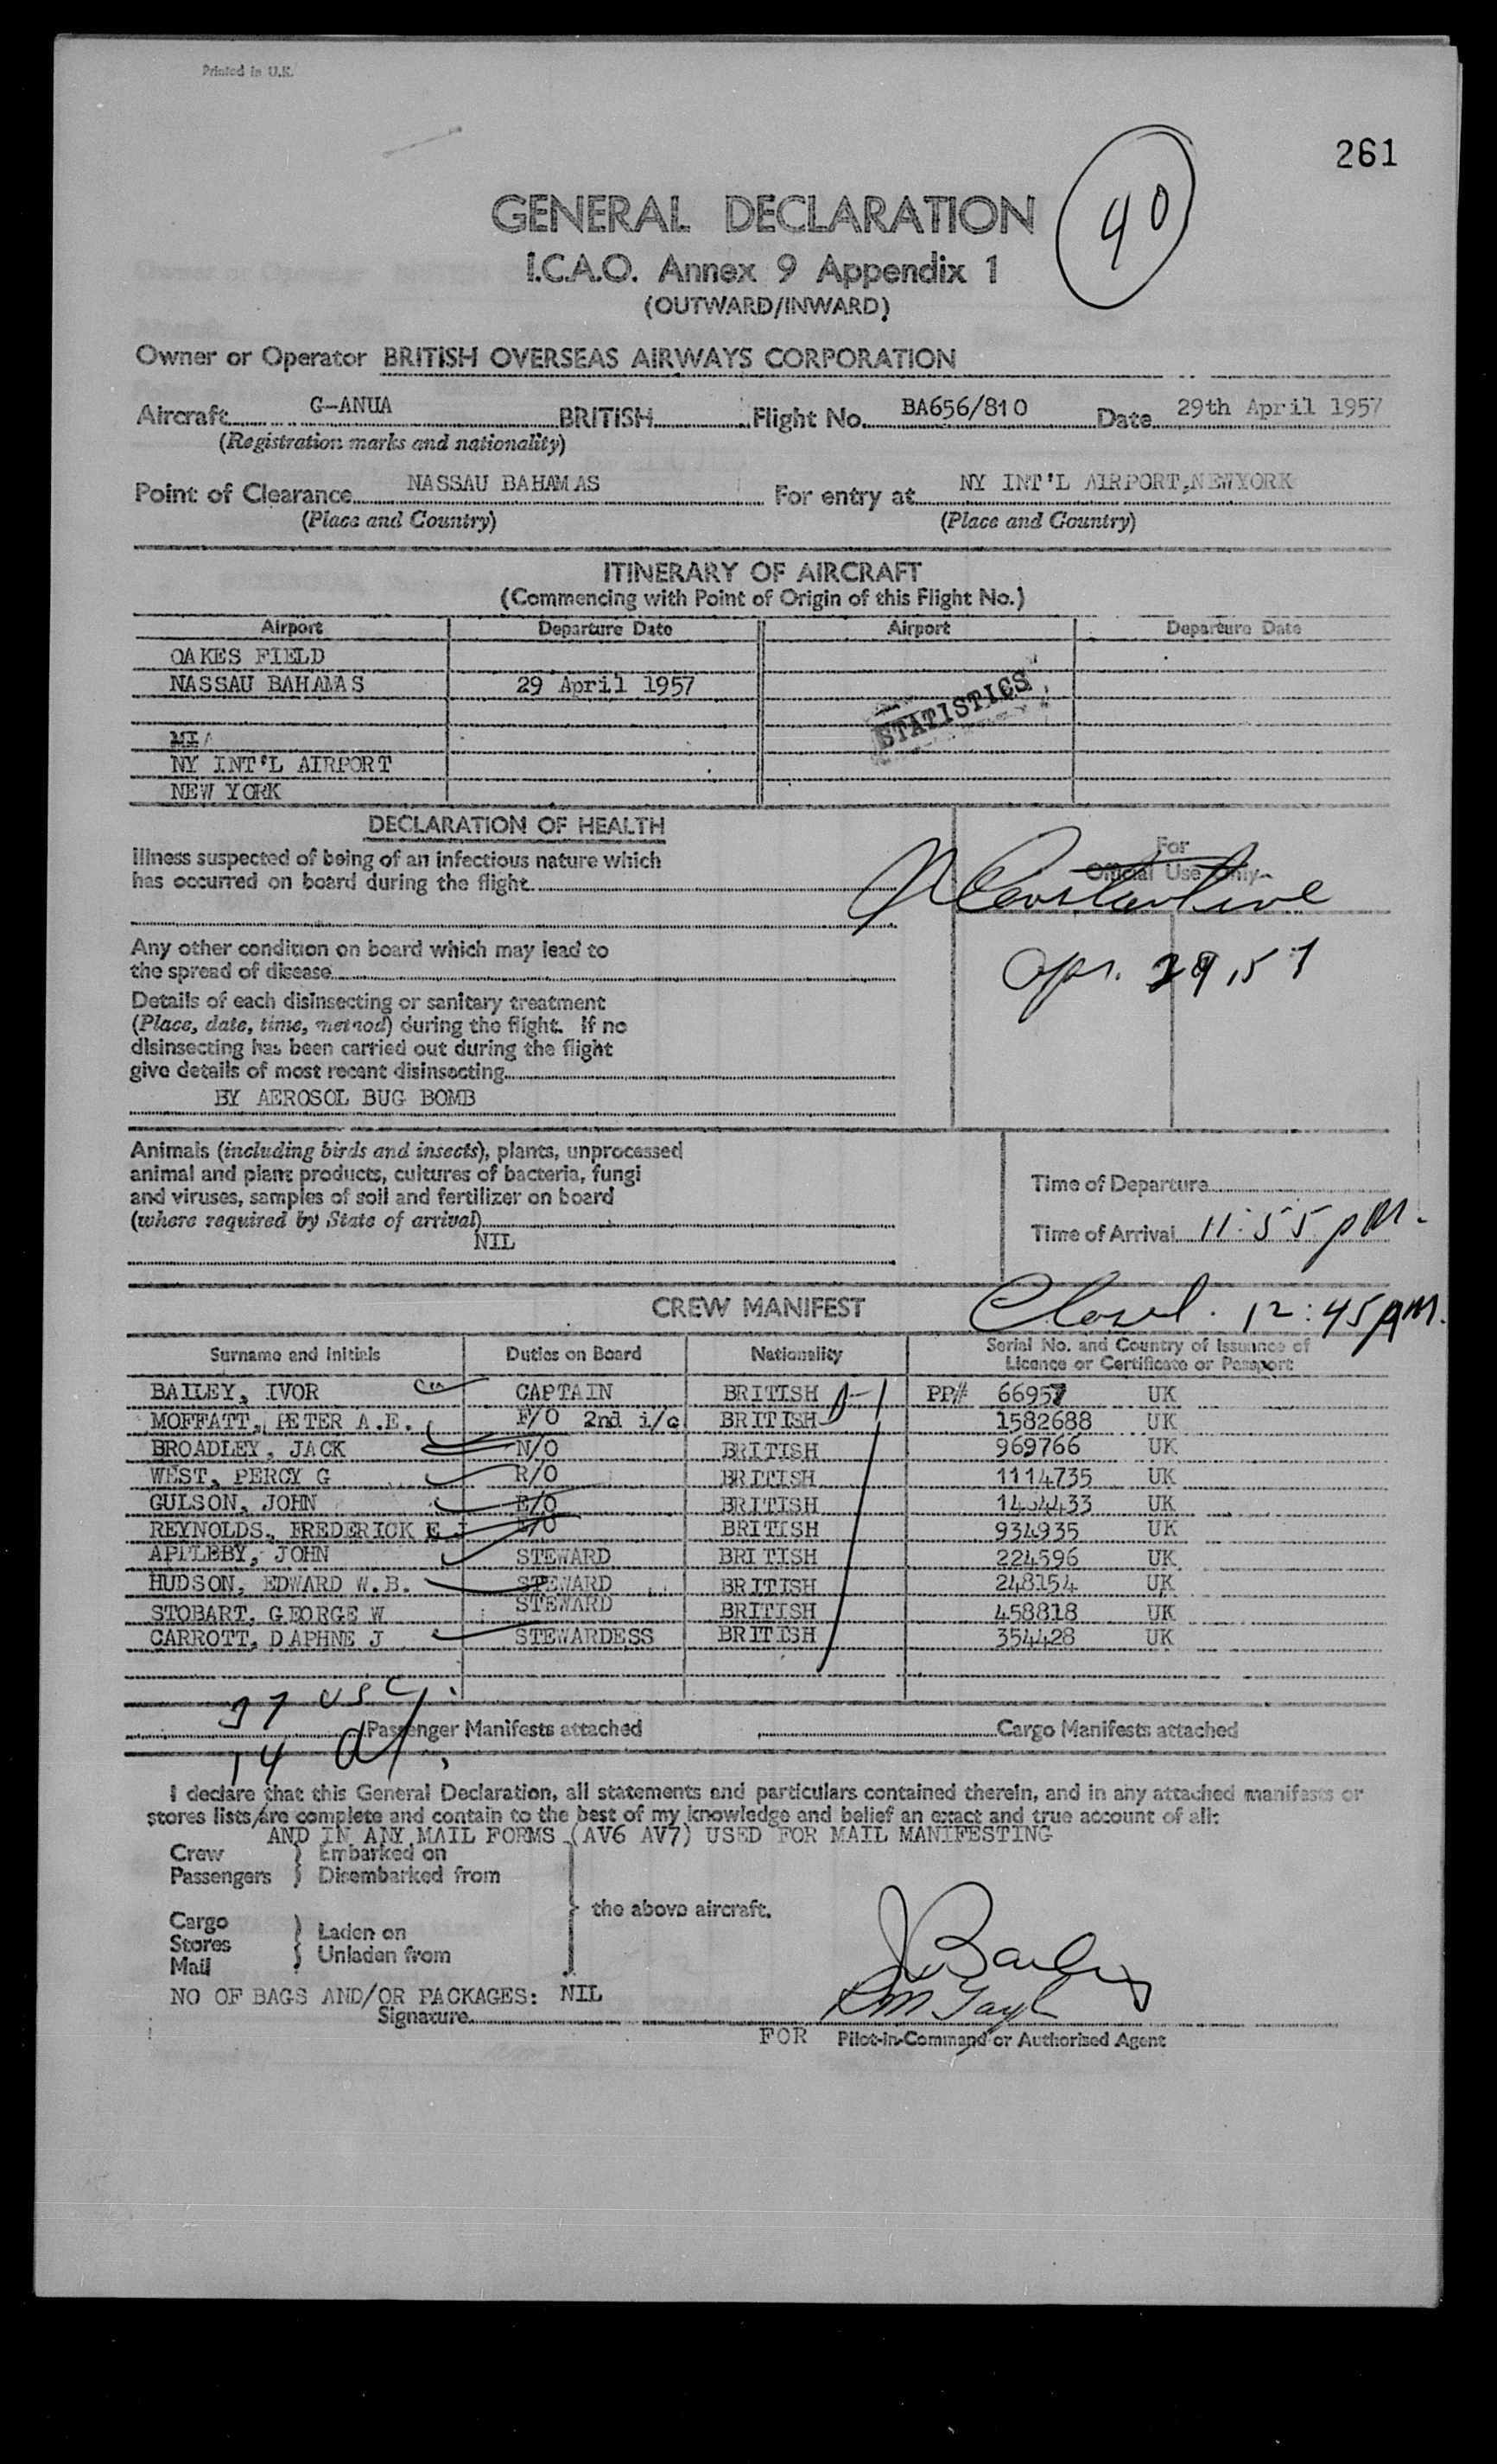 Printed in U.K.
261
GENERAL DECLARATION
40
I.C.A.O. Annex 9 Appendix 1
(OUTWARD/INWARD)
Owner or Operator BRITISH OVERSEAS AIRWAYS CORPORATION
Aircraft G-ANUA BRITISH Flight No. BA656/810 Date 29th April 1957
(Registration marks and nationality)
Point of Clearance NASSAU BAHAMAS For entry at NY INT'L AIRPORT, NEWYORK
(Place and Country) (Place and Country)
ITINERARY OF AIRCRAFT
(Commencing with Point of Origin of this Flight No.)
Airport Departure Date Airport Departure Date
OAKES FIELD
NASSAU BAHAMAS 29 April 1957
STATISTICS
NY INT'L AIRPORT
NEW YORK
DECLARATION OF HEALTH
Illness suspected of being of an infectious nature which
has occurred on board during the flight
For
Official Use Only
Constantine
Apr. 29, 57
Any other condition on board which may lead to
the spread of disease
Details of each disinsecting or sanitary treatment
(Place, date, time, method) during the flight. If no
disinsecting has been carried out during the flight
give details of most recent disinsecting
BY AEROSOL BUG BOMB
Animals (including birds and insects), plants, unprocessed
animal and plant products, cultures of bacteria, fungi
and viruses, samples of soil and fertilizer on board
(where required by State of arrival)
NIL
Time of Departure
Time of Arrival 11:55 pm.
CREW MANIFEST
Closed. 12:45 pm.
Surname and Initials Duties on Board Nationality Serial No. and Country of Issuance of Licence or Certificate or Passport
BAILEY, IVOR CAPTAIN BRITISH D-1 PP# 66957 UK
MOFFATT, PETER A.E. F/O 2nd i/c BRITISH 1582688 UK
BROADLEY, JACK N/O BRITISH 969766 UK
WEST, PERCY G R/O BRITISH 1114735 UK
GULSON, JOHN E/O BRITISH UK
REYNOLDS, FREDERICK E E/O BRITISH 934935 UK
APPLEBY, JOHN STEWARD BRITISH 224596 UK
HUDSON, EDWARD W.B. STEWARD BRITISH 248154 UK
STOBART, GEORGE W STEWARD BRITISH 458818 UK
CARROTT, DAPHNE J STEWARDESS BRITISH 354428 UK
37 USC.
Passenger Manifests attached Cargo Manifests attached
14 Al.
I declare that this General Declaration, all statements and particulars contained therein, and in any attached manifests or
stores lists/are complete and contain to the best of my knowledge and belief an exact and true account of all:
AND IN ANY MAIL FORMS (AV6 AV7) USED FOR MAIL MANIFESTING
Crew Embarked on
Passengers Disembarked from
the above aircraft.
Cargo
Stores Laden on
Mail Unladen from
NO OF BAGS AND/OR PACKAGES: NIL
Signature
FOR Pilot-in-Command or Authorised Agent